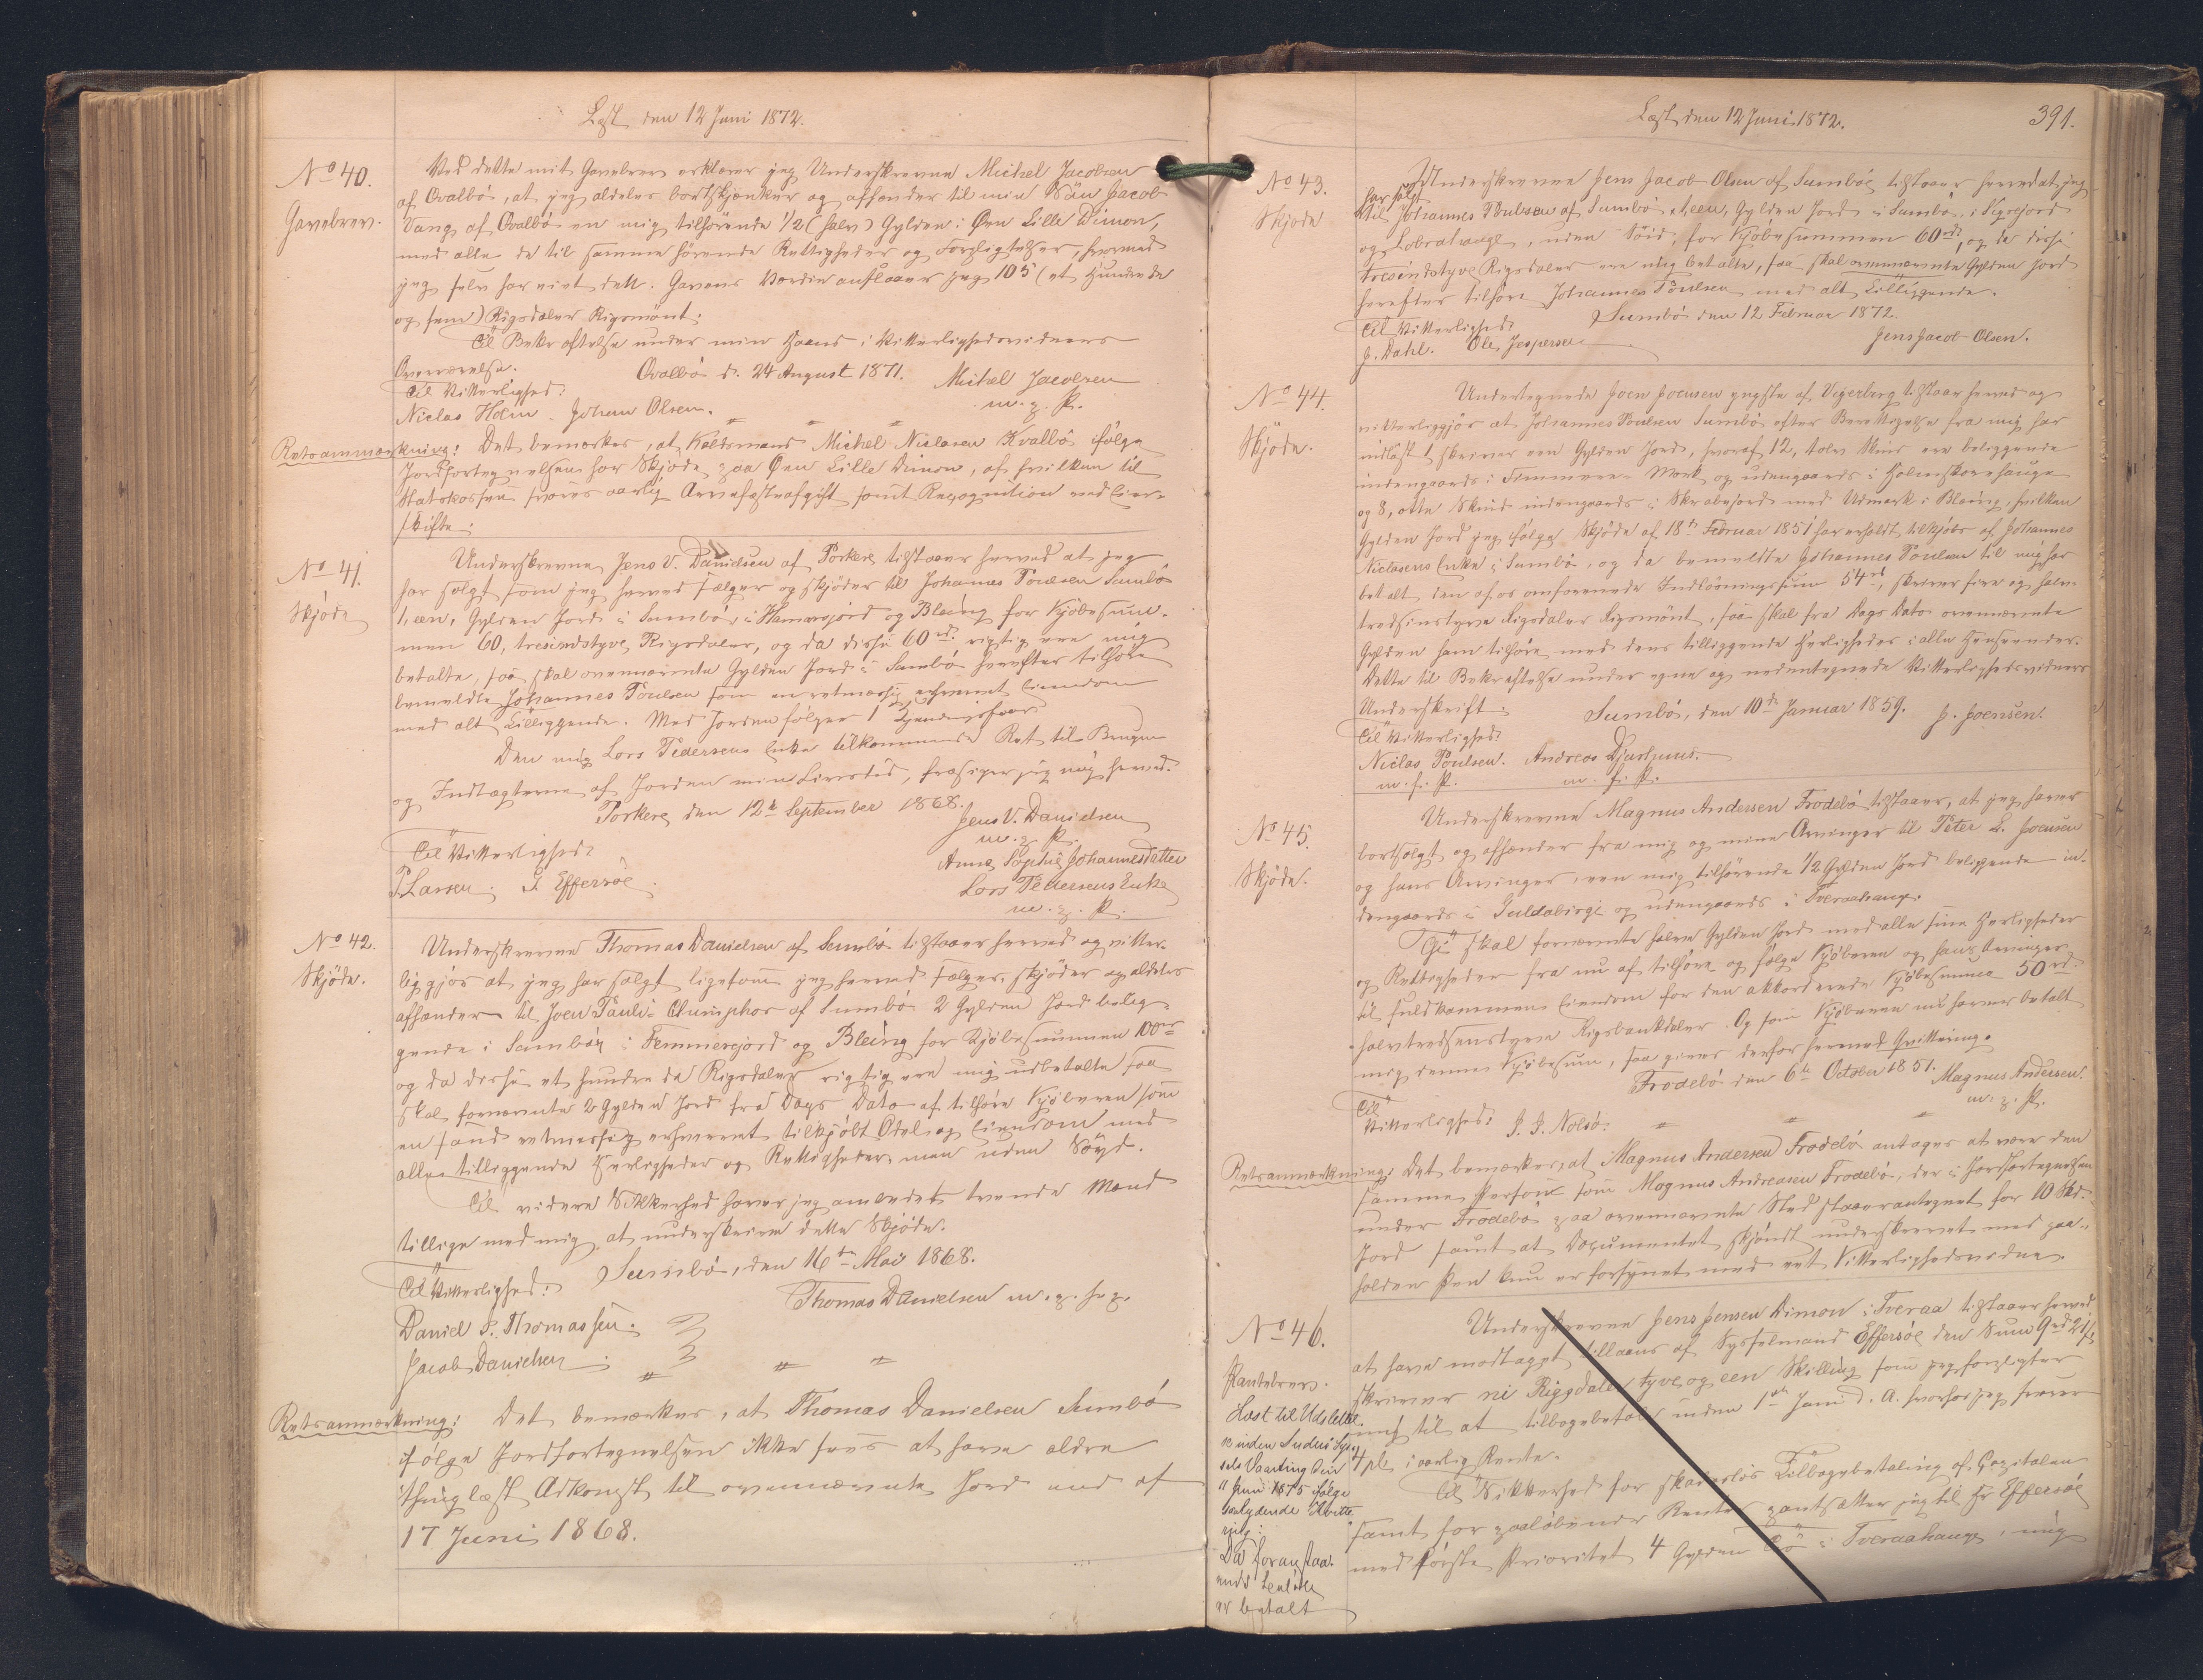 Læst den 12 Juni 1872.
No 40.
Gavebrev.
Ved dette mit Gavebrev erklærer jeg Underskrevne Michel Jacobsen
af Qvalbö, at jeg aldeles bortskjænker og afhænder til min Sön Jacob
Vang af Qvalbö en mig tilhörende 1/2 (halv) Gylden i Öen Lille Dimon,
med alle de til samme hörende Rettigheder og Forpligtelser, hvormed
jeg selv har eiet dett. Gavens Værdie anslaaer jeg 105 (et Hundrede
og fem) Rigsdaler Rigsmönt.
Til Bekræftelse under min Haand i Vitterlighedsvidners
Overværelse. Qvalbö d. 24 August 1871. Michel Jacobsen
Til Vitterlighed: m. p. P.
Niclas Holm. Johan Olsen.
Retsanmærkning: Det bemærkes, at Michel Niclasen Kvalbö ifölge
Jordfortegnelsen har Skjöde paa Öen Lille Dimon, af hvilken til
Statskassen svares aarlig Arvefæsteafgift samt Recognition ved Eier-
skifte.
No 41.
Skjöde
Underskrevne Jens V. Danielsen af Porkere tilstaaer herved at jeg
har solgt som jeg herved sælger og skjöder til Johannes Poulsen Sumbö
1, een, Gylden Jord i Sumbö, i Hamarsjord og Bleing for Kjöbesum-
men 60, tresindstyve, Rigsdaler, og da disse 60 rd. rigtig ere mig
betalte, saa skal ovennævnte Gylden Jord i Sumbö herefter tilhöre
bemeldte Johannes Poulsen som en retmæssig erhvervet Eiendom
med alt Tilliggende. Med Jorden fölger 1
Den mig Lars Pedersens Enke tilkommende Ret til Brugen
og Indtægterne af Jorden min Livstid, frasiger jeg mig herved.
Porkere, den 12te September 1868.
Jens V. Danielsen
m. p. P.
Til Vitterlighed: Anna Sophie Johannesdatter
P. Larsen. J. Effersöe. Lars Pedersens Enke
m. p. P.
No 42.
Skjöde.
Underskrevne Thomas Danielsen af Sumbö tilstaaer herved og vitter-
liggjör at jeg har solgt ligesom jeg herved sælger, skjöder og aldeles
afhænder til Joen Pauli Olumphos af Sumbö 2 Gylden Jord belig-
gende i Sumbö, i Femmerejord og Bleing for Kjöbesummen 100 rd
og da disse et hundrede Rigsdaler rigtig ere mig udbetalte saa
skal fornævnte 2 Gylden Jord fra Dags Dato af tilhöre Kjöberen som
en sand retmæssig erhvervet tilkjöbt Odel og Eiendom med
alle tilliggende Herligheder og Rettigheder, men uden Söyd.
Til videre Sikkerhed haver jeg ombedet tvende Mænd
tillige med mig at underskrive dette Skjöde.
Sumbö, den 16de Mai 1868.
Til Vitterlighed: Thomas Danielsen m. p. P.
Daniel P. Thomassen.
Jacob Danielsen
Retsanmærkning: Det bemærkes, at Thomas Danielsen Sumbö
ifölge Jordfortegnelsen ikke sees at have ældre
thinglæst Adkomst til ovennævnte Jord end af
17 Juni 1868.
Læst den 12 Juni 1872. 391.
No 43.
Skjöde
Underskrevne Jens Jacob Olsen af Sumböe tilstaaer herved at jeg
har solgt
til Johannes Poulsen af Sumbö 1, een, Gylden Jord i Sumbö, i
og, uden Söid, for Kjöbesummen 60 rd, og da disse
tresindstyve Rigsdaler ere mig betalte, saa skal ovennævnte Gylden Jord
herefter tilhöre Johannes Poulsen med alt Tilliggende.
Sumbö den 12 Februar 1872.
Til Vitterlighed: Jens Jacob Olsen.
J. Dahl. Ole Jespersen
No 44.
Skjöde.
Undertegnede Joen Joensen yngste af Vigerberg tilstaar herved og
vitterliggjör at Johannes Poulsen Sumbö efter Berettigelse fra mig har
indlöst 1 skriver een Gylden Jord, hvoraf 12, tolv Skind ere beliggende
indengaards i Femmere Mark og udengaards i
og 8, otte Skind indengaards i Skrabejord med Udmark i Bleing, hvilken
Gylden Jord jeg ifölge Skjöde af 18de Februar 1851 har erholdt tilkjöbs af Johannes
Niclasens Enke i Sumbö, og da bemeldte Johannes Poulsen til mig har
betalt den af os omforenede Indlösningssum 54 rd, skriver fire og halv-
tredsinstyve Rigsdaler Rigsmönt, saa skal fra Dags Dato ovennævnte
Gylden ham tilhöre med dens tilliggende Herligheder i alle Henseender.
Dette til Bekræftelse under egne og nedentegnede Vitterlighedsvidners
Underskrift.
Sumbö, den 10de Januar 1859. J. Joensen.
Til Vitterlighed:
Niclas Poulsen. Andreas Djurhuus.
m. f. P. m. f. P.
No 45.
Skjöde.
Underskrevne Magnus Andersen Frodebö tilstaaer, at jeg haver
bortsolgt og afhænder fra mig og mine Arvinger til Peter L. Joensen
og hans Arvinger, een mig tilhörende 1/2 Gylden Jord beliggende in-
dengaards i og udengaards i Tveraahauge.
Thi skal fornævnte halve Gylden Jord med alle sine Herligheder
og Rettigheder fra nu af tilhöre og fölge Kjöberen og hans Arvinger
til fuldkommen Eiendom for den akkorderede Kjöbesumma 50 rd.
halvtredsenstyve Rigsbankdaler. Og som Kjöberen nu haver betalt
mig denne Kjöbesum, saa gives derfor herved Qvittering.
Frodebö den 6te October 1851. Magnus Andersen.
Til m. p. P.
Vitterlighed: J. J. Nolsö.
Retsanmærkning: Det bemærkes, at Magnus Andersen Frodebö antages at være den
samme Person som Magnus Andreasen Frodebö, der i Jordfortegnelsen
under Frodebö paa ovennævnte Sted staaer antegnet for 10 Skd.
Jord samt at Documentet skjöndt underskrevet med paa-
holden Pen kun er forsynet med eet Vitterlighedsvidne.
No 46.
Pantebrev.
Læst til Udslettel-
se inden Suderö Sys-
sels Vaarting den
11 Juni 1875 ifölge
saalydende Qvitte
ring:
Da foranstaa-
ende
er betalt
Underskrevne Jens Jensen Dimon i Tveraa tilstaaer herved
at have modtaget tillaans af Sysselmand Effersöe den Sum 9 rd 21 s
skriver ni Rigsdaler tyve og een Skilling som jeg forpligter
mig til at tilbagebetale inden 1ste Juni d. A. hvorfor jeg svarer
4 pCt. i aarlig Rente.
Til Sikkerhed for skadeslös Tilbagebetaling af Capitalen
samt for paalöbende Renter pantsætter jeg til Hr Effersöe
med förste Prioritet 4 Gylden i Tveraahauge, mig